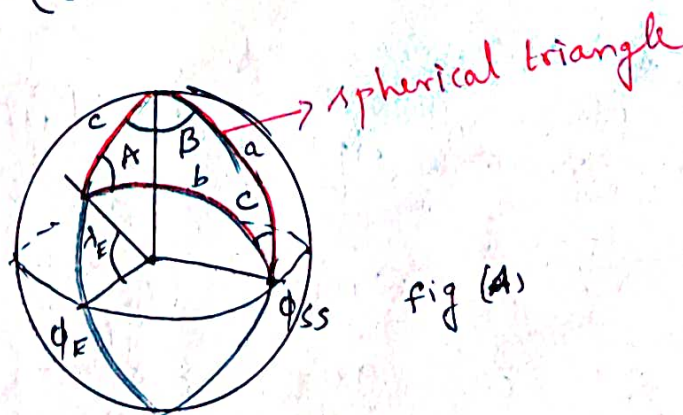 spherical triangle
c
B
a
A
b
C
λE
ϕE
ϕSS
fig (A)